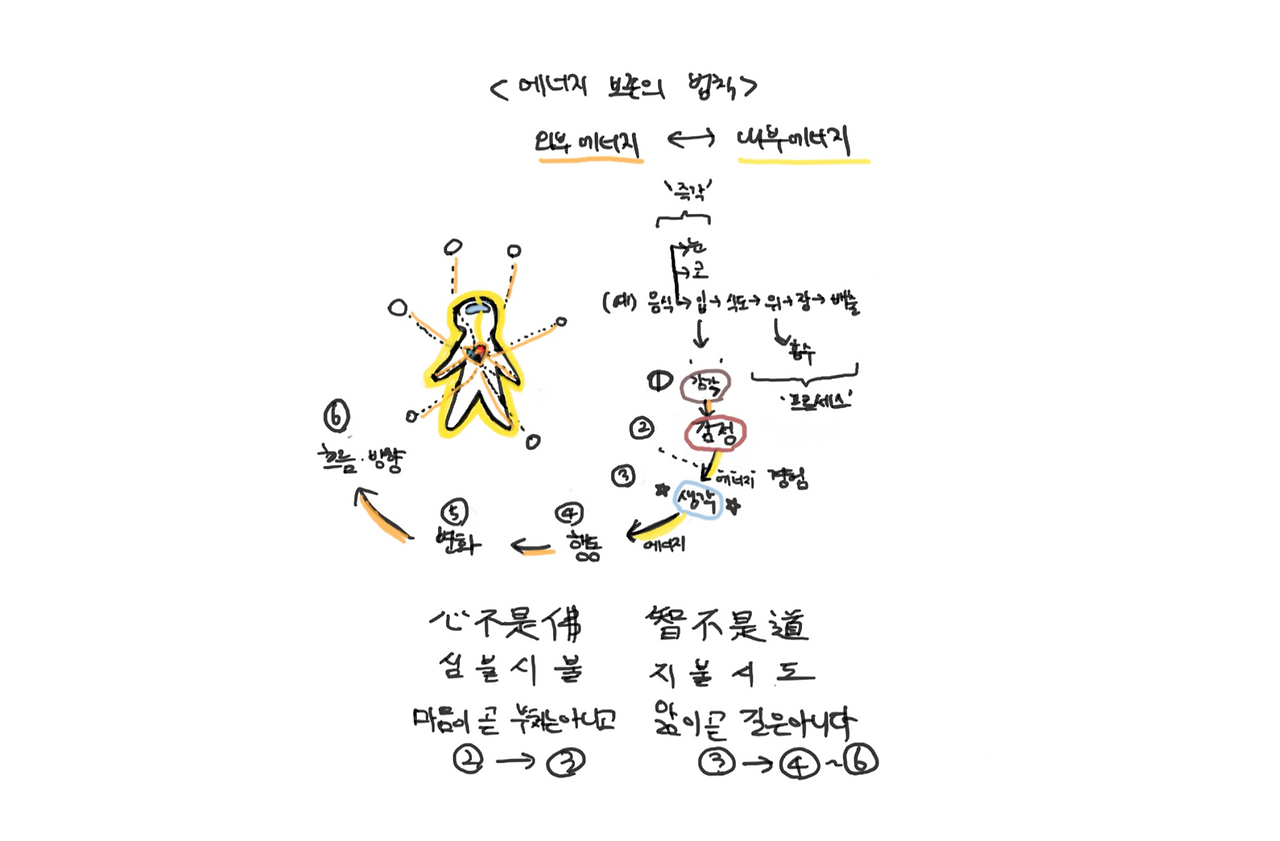 <에너지 보존의 법칙>
외부에너지 ↔ 내부에너지
'즉각'
→눈
→코
(예) 음식→입→식도→위→장→배출
흡수
'프로세스'
① 감각
② 감정
에너지 경험
③ ★생각★
에너지
④ 행동
⑤ 변화
⑥ 흐름·방향
心不是佛 智不是道
심불시불 지불시도
마음이 곧 부처는아니고 앎이곧 길은아니다
②→③ ③→④~⑥